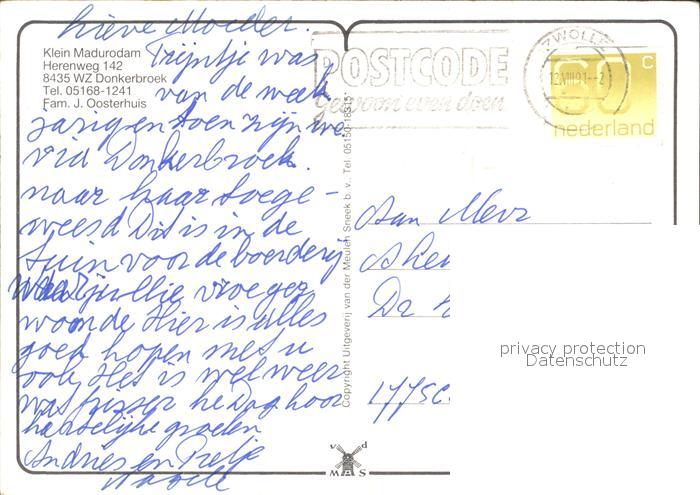 Lieve Moeder.
Klein Madurodam
Herenweg 142
8435 WZ Donkerbroek
Tel. 05168-1241
Fam. J. Oosterhuis
Trijntje was
van de week
jarig en toen zijn we
via Donkerbroek.
naar haar toege-
weest Dit is in de
tuin voor de boerderij
waar jullie vroeger
woonde Hier is alles
goed hopen met u
ook. Het is wel weer
wat frisser he Dag hoor
hartelijke groeten
Andries en Pietje
Copyright Uitgeverij van der Meulen Sneek b.v., Tel. 05150-18315
v d
MAS
POSTCODE
gewoon even doen
ZWOLLE
12.VIII.91.--2
60 C
nederland
Aan Mevr
Dr
privacy protection
Datenschutz